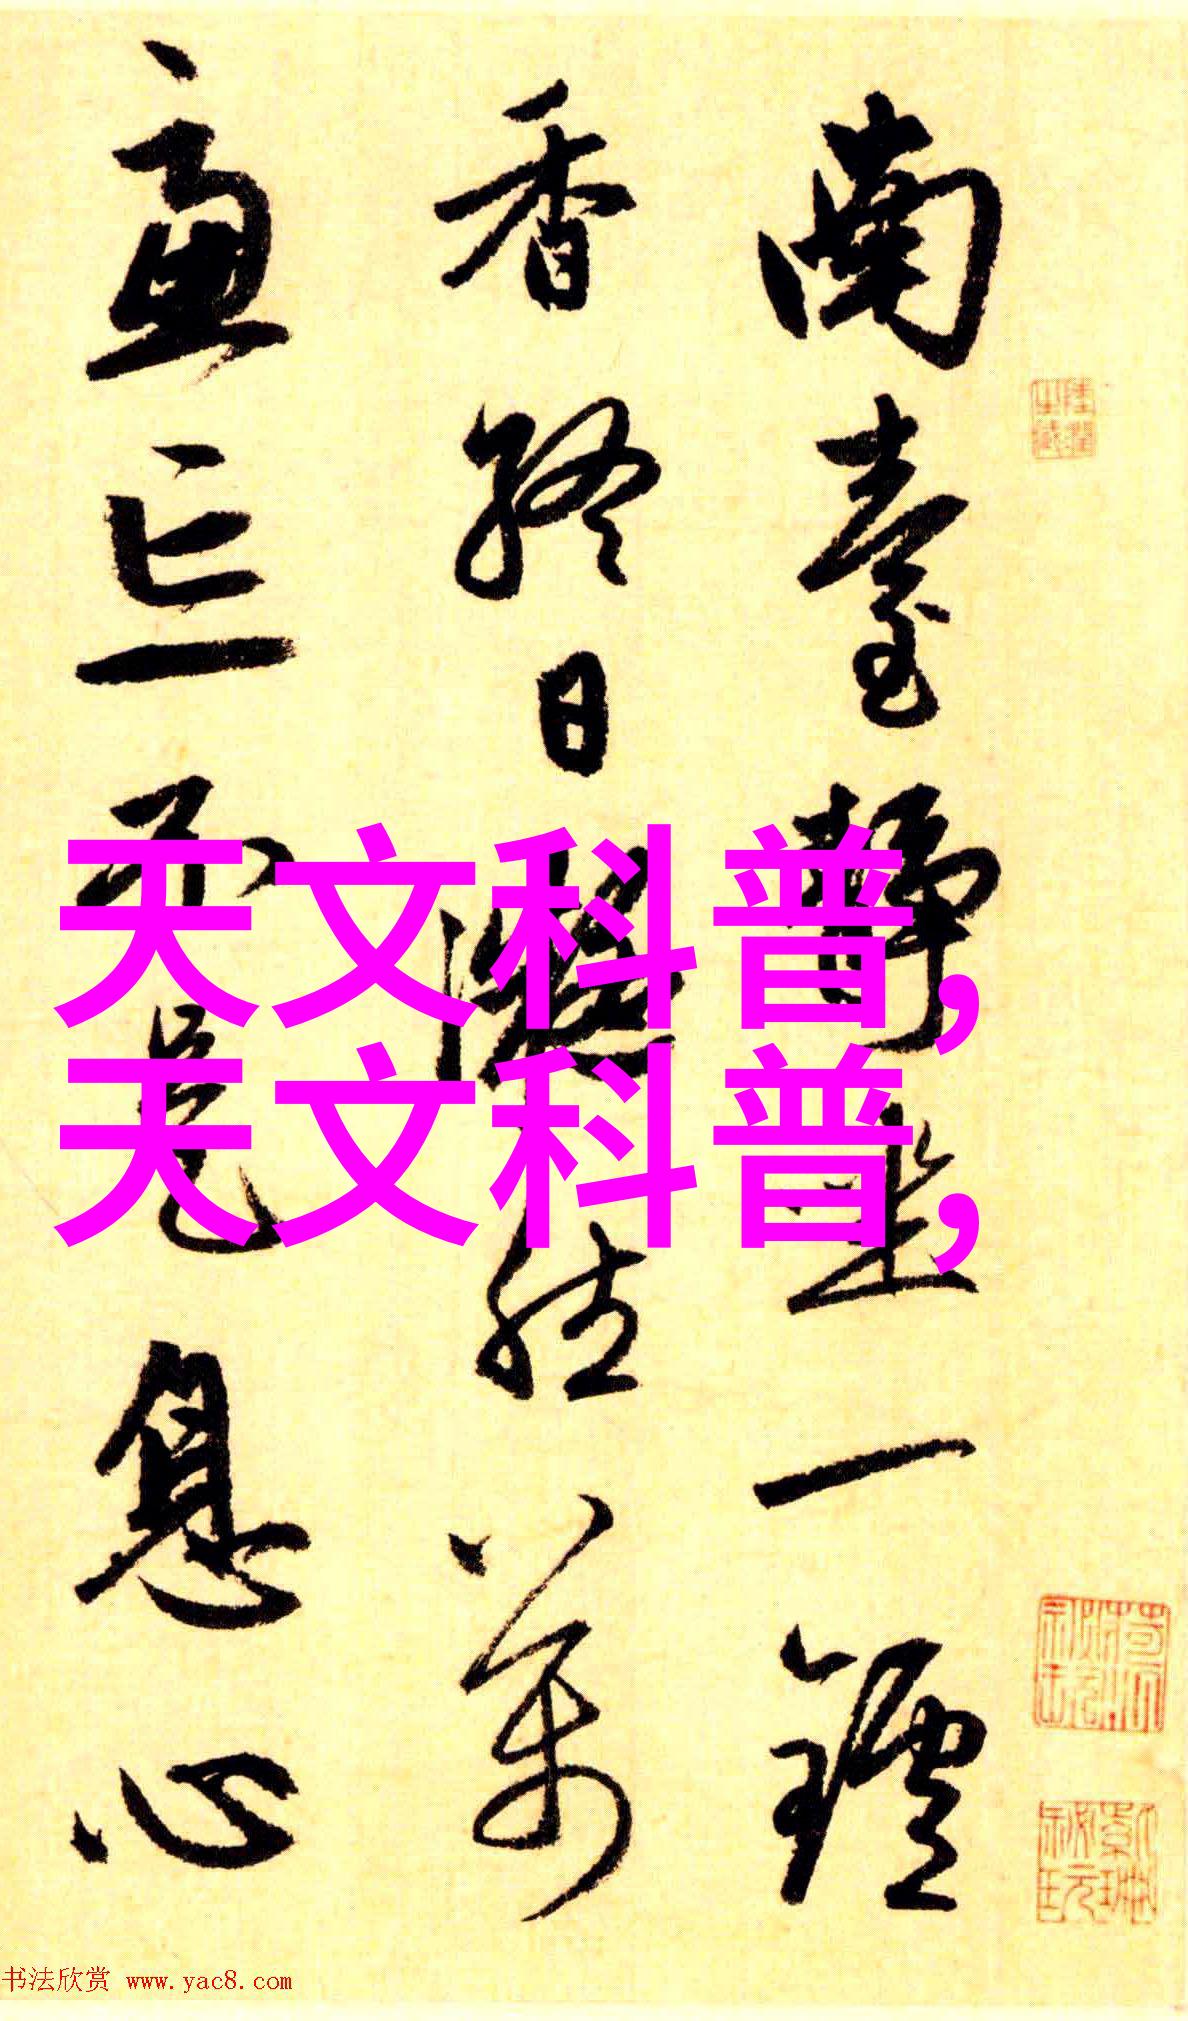 南臺静坐一鑪
香終日凝然萬
慮亡不是息心
天文科普,
天文科普,
书法欣赏 www.yac8.com